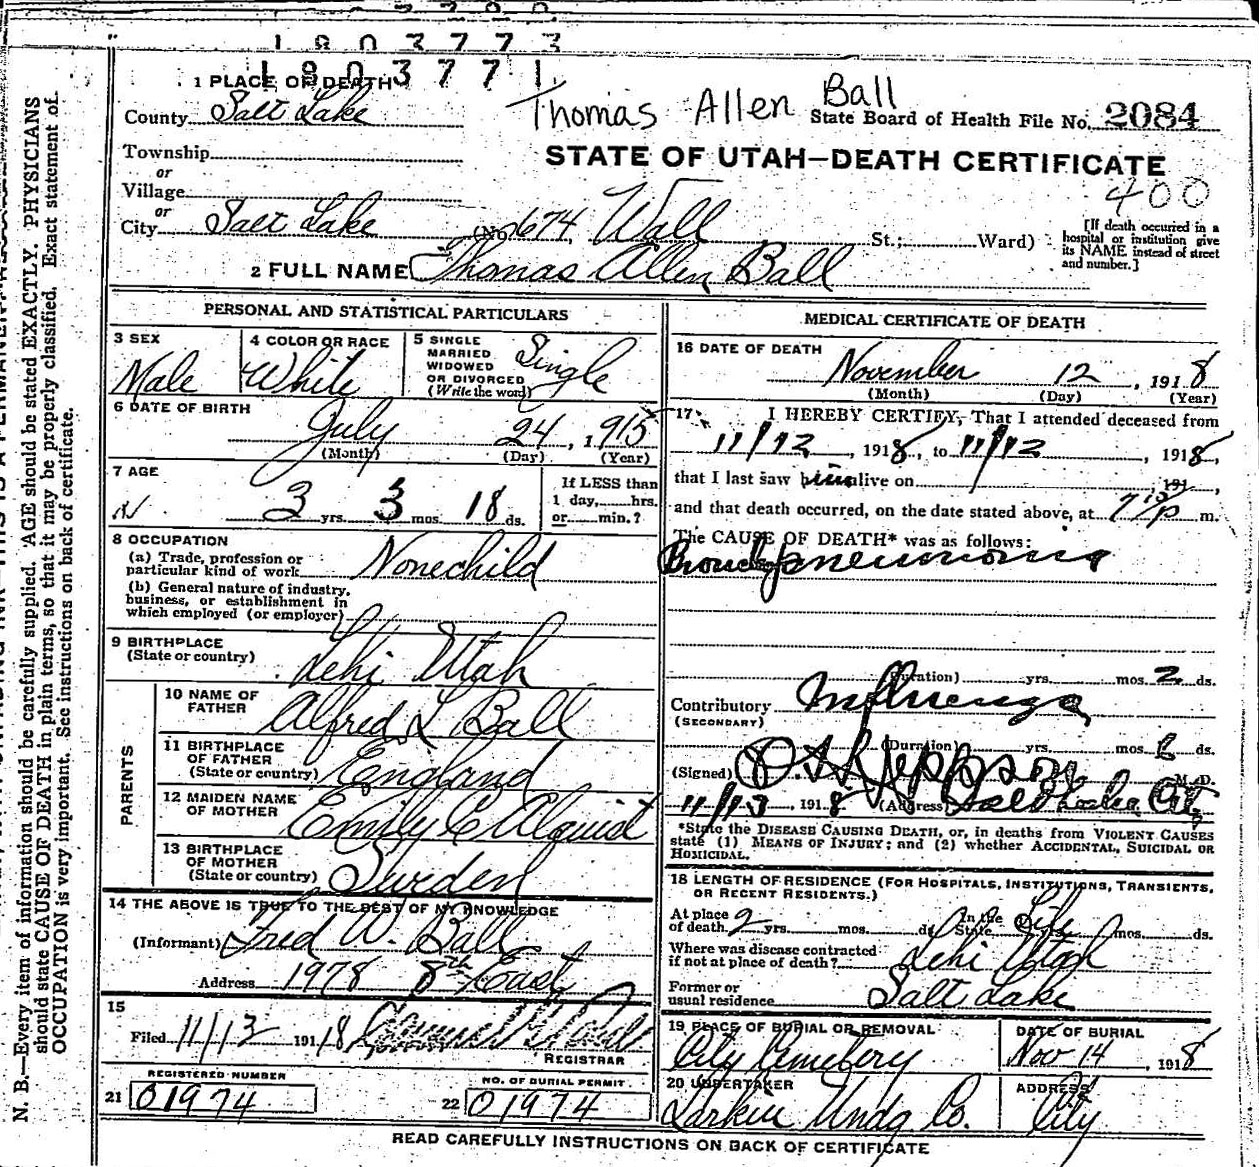 1803773
1803771
1 PLACE OF DEATH
County Salt Lake
Thomas Allen Ball
State Board of Health File No. 2084
Township
or
Village
or
City Salt Lake (No. 674 Wall St.; Ward)
STATE OF UTAH—DEATH CERTIFICATE
400
[If death occurred in a
hospital or institution give
its NAME instead of street
and number.]
2 FULL NAME Thomas Allen Ball
PERSONAL AND STATISTICAL PARTICULARS
3 SEX
Male
4 COLOR OR RACE
White
5 SINGLE
MARRIED
WIDOWED
OR DIVORCED
(Write the word)
Single
6 DATE OF BIRTH
July 24, 1915
(Month) (Day) (Year)
7 AGE
3 yrs. 3 mos. 18 ds.
If LESS than
1 day, hrs.
or min.?
8 OCCUPATION
(a) Trade, profession or
particular kind of work None child
(b) General nature of industry,
business, or establishment in
which employed (or employer)
9 BIRTHPLACE
(State or country) Lehi Utah
PARENTS
10 NAME OF
FATHER Alfred L Ball
11 BIRTHPLACE
OF FATHER
(State or country) England
12 MAIDEN NAME
OF MOTHER Emily C Alquist
13 BIRTHPLACE
OF MOTHER
(State or country) Sweden
14 THE ABOVE IS TRUE TO THE BEST OF MY KNOWLEDGE
(Informant) Fred W. Ball
Address 1978 8th East
15
Filed 11/13 1918
REGISTRAR
REGISTERED NUMBER
21 01974
NO. OF BURIAL PERMIT
22 01974
MEDICAL CERTIFICATE OF DEATH
16 DATE OF DEATH
November 12, 1918
(Month) (Day) (Year)
17 I HEREBY CERTIFY, That I attended deceased from
11/12, 1918, to 11/12, 1918,
that I last saw him alive on , 191 ,
and that death occurred, on the date stated above, at m.
The CAUSE OF DEATH* was as follows:
Bronchopneumonia
(Duration) yrs. mos. 2 ds.
Contributory Influenza
(SECONDARY)
(Duration) yrs. mos. 6 ds.
(Signed) Jeppson M. D.
11/13, 1918 (Address) Salt Lake City
*State the DISEASE CAUSING DEATH, or, in deaths from VIOLENT CAUSES
state (1) MEANS OF INJURY; and (2) whether ACCIDENTAL, SUICIDAL OR
HOMICIDAL.
18 LENGTH OF RESIDENCE (FOR HOSPITALS, INSTITUTIONS, TRANSIENTS,
OR RECENT RESIDENTS.)
At place
of death 2 yrs. mos. ds. In the State Life mos. ds.
Where was disease contracted
if not at place of death? Lehi Utah
Former or
usual residence Salt Lake
19 PLACE OF BURIAL OR REMOVAL
City Cemetery
DATE OF BURIAL
Nov 14, 1918
20 UNDERTAKER
Larkin Undg Co.
ADDRESS
City
READ CAREFULLY INSTRUCTIONS ON BACK OF CERTIFICATE
N. B.—Every item of information should be carefully supplied. AGE should be stated EXACTLY. PHYSICIANS
should state CAUSE OF DEATH in plain terms, so that it may be properly classified. Exact statement of
OCCUPATION is very important. See instructions on back of certificate.